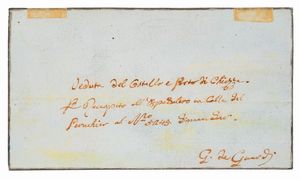 Veduta del Castello e Porto di Chiozza
Recapito all' Spedaletto in Calle del
Peruchier al Nro 5245
G. de Guardi